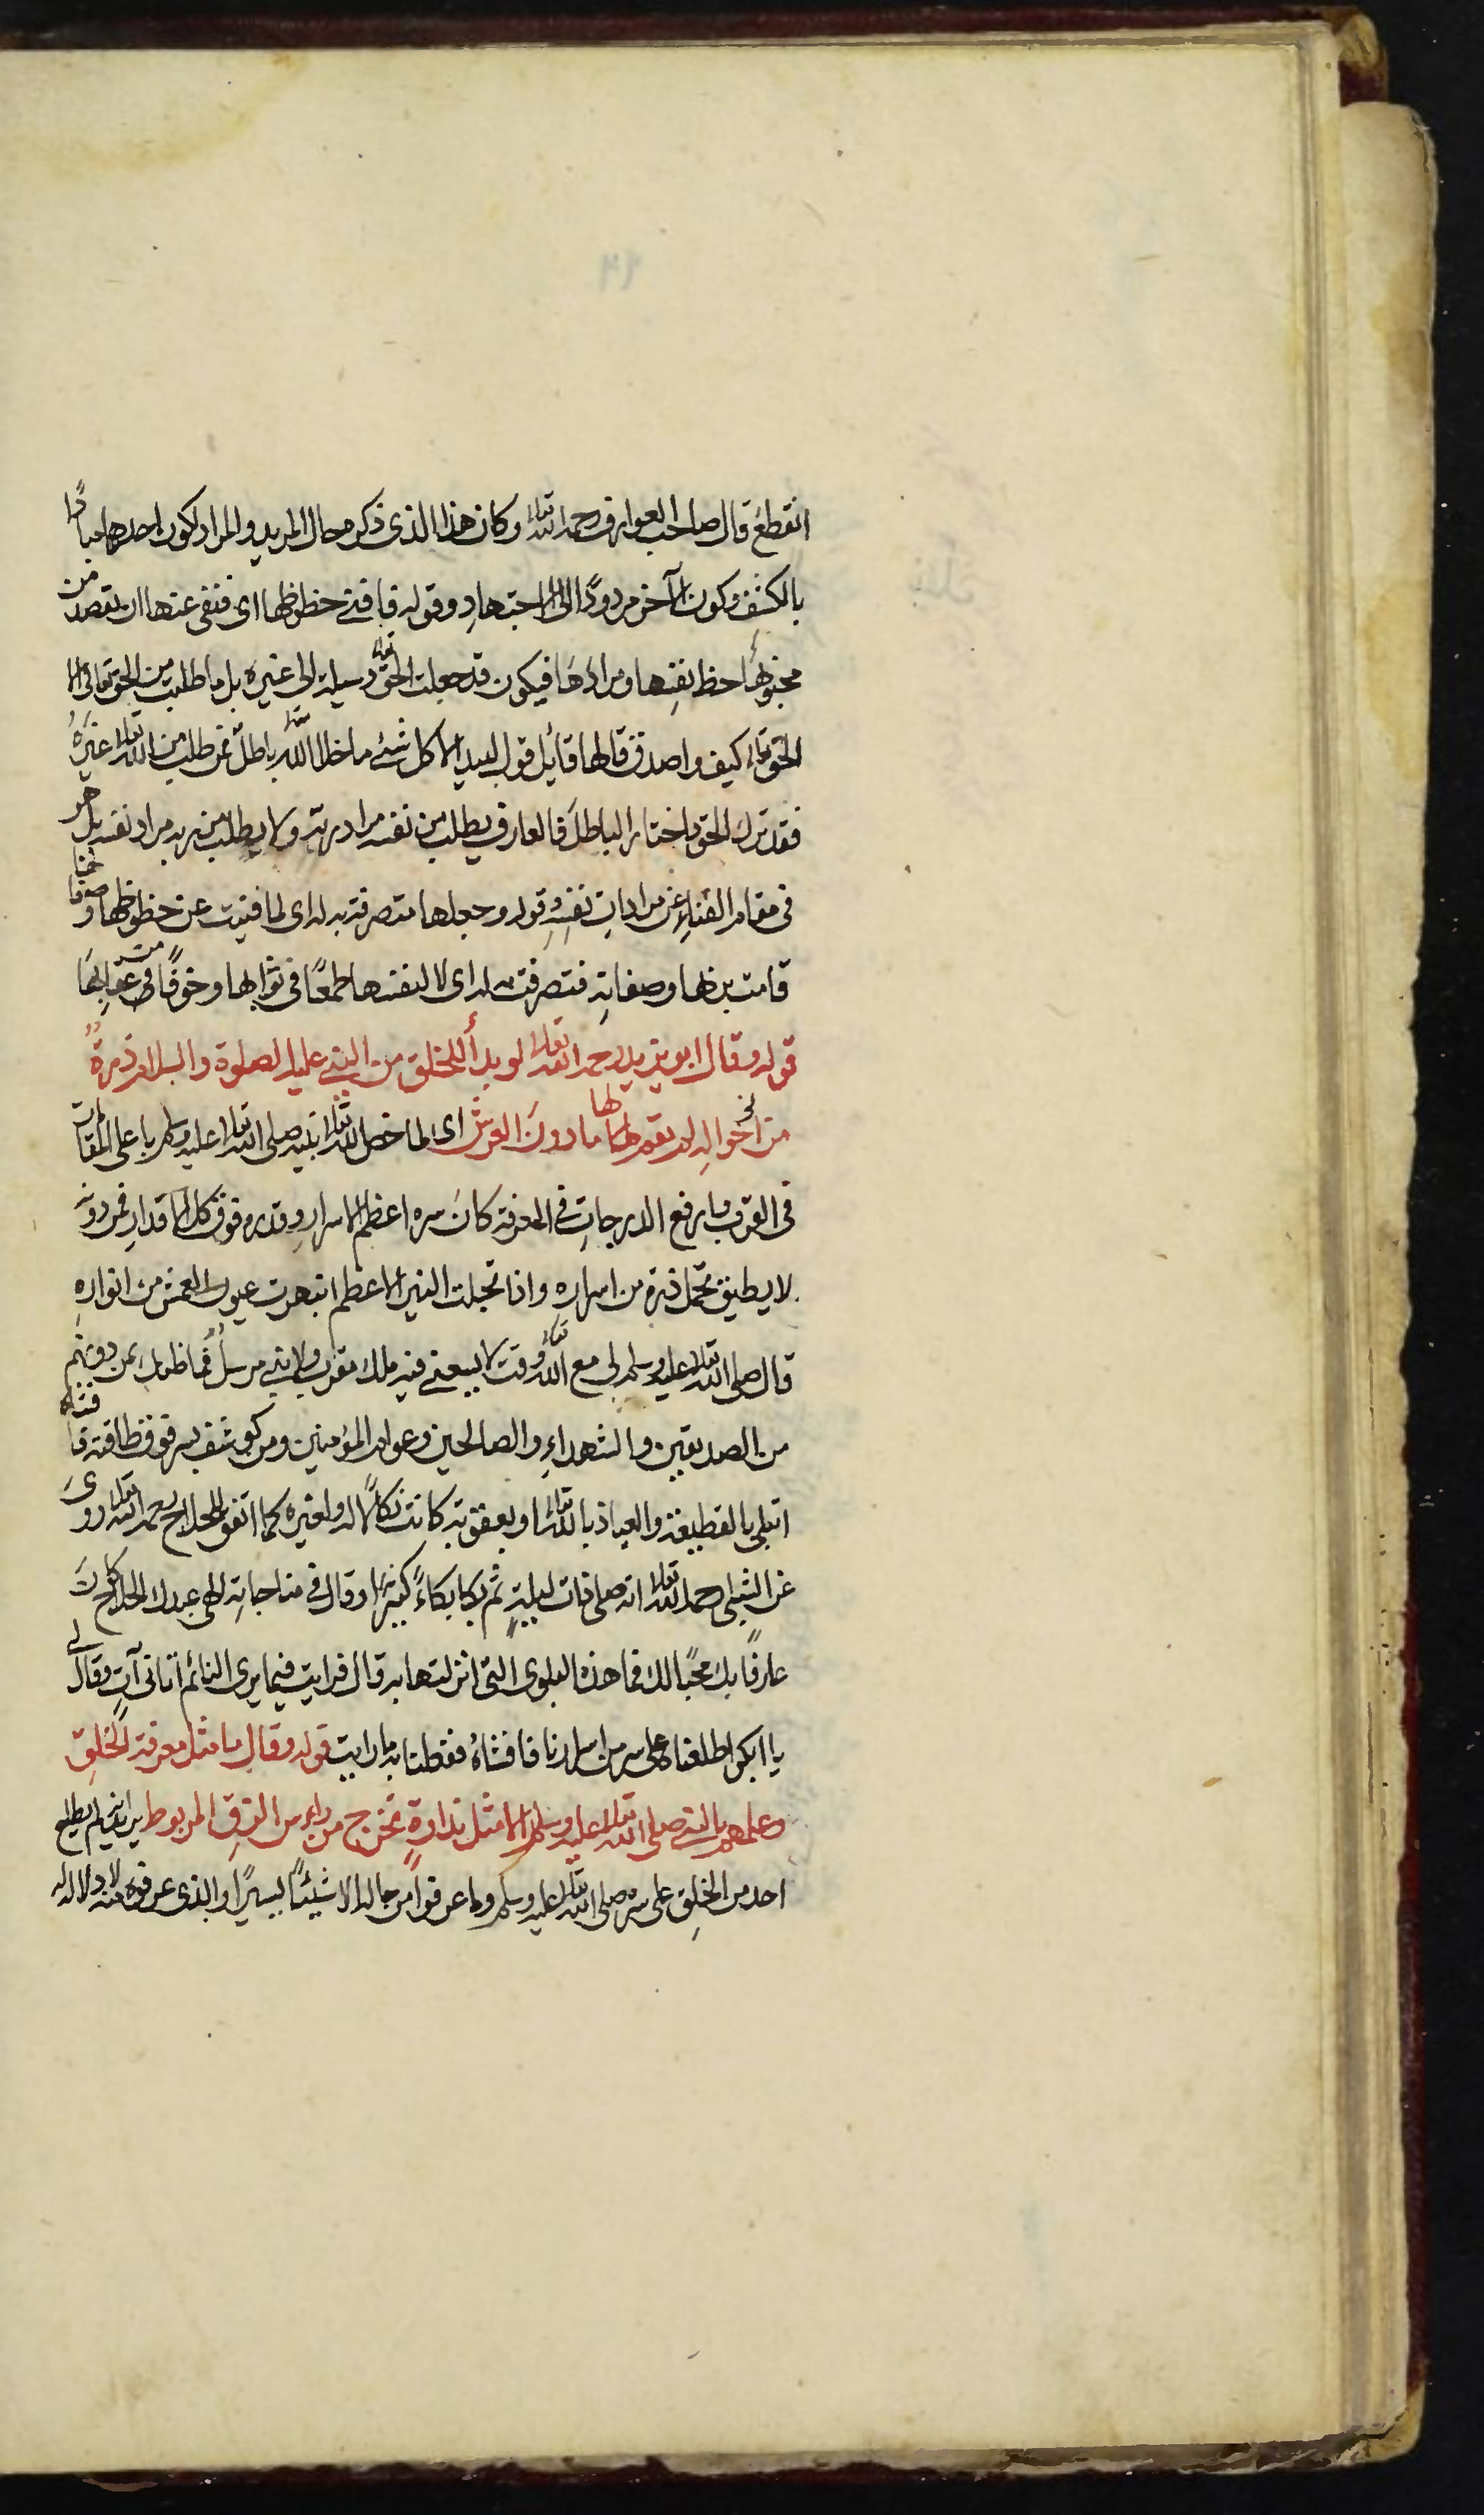 انقطع قال صاحب العوارف رحمه الله تعالى وكان هذا الذى ذكر محال المريد والمراد لكون احدهما مبادًا
بالكشف وكون الآخر مردودًا الى الاجتهاد وقوله فافنى حظوظها اى فنفى عنها ان يقصد من
محبوبها حظ نفسها ومرادها فيكون قد جعلت الحق تعالى وسيلة الى غيره بل ما طلبت من الحق تعالى الا
الحق تعالى كيف واصدق قالها قائل قول لبيد الا كل شئ ما خلا الله تعالى باطل فمن طلب من الله تعالى غيره
فقد ترك الحق واختار الباطل فالعارف يطلب من نفسه مراد ربه ولا يطلب من ربه مراد نفسه بل هو
فى مقام الفناء عن مرادات نفسه وقوله وجعلها متصرفة به له اى لما فنيت عن حظوظها وصفاتها
قامت بربها وصفاته فتصرفت به له اى لا لنفسها طمعًا فى ثوابها وخوفًا من عقابها
قوله وقال ابو يزيد رحمه الله تعالى لو بدأ للخلق من النبى عليه الصلوة والسلام ذرة
من احواله لم يقم لها ما دون العرش اى لما خص الله تعالى نبيه صلى الله تعالى عليه وسلم باعلى المقامات
فى القرب وبارفع الدرجات فى المعرفة كان سره اعظم الاسرار وقدره فوق كل الاقدار فمن دونه
لا يطيق تحمل ذرة من اسراره واذا تجلت النير الاعظم انبهرت عيون العمش من انواره
قال صلى الله تعالى عليه وسلم لى مع الله تعالى وقت لا يسعنى فيه ملك مقرب ولا نبى مرسل فما ظنك بمن دونهم
من الصديقين والشهداء والصالحين وعوام المؤمنين ومن كوشف بسر فوق طاقته فافشاه
ابتلى بالقطيعة والعياذ بالله تعالى او بعقوبة كانت نكالا له ولغيره كما اتفق للحلاج رحمه الله تعالى روى
عن الشبلى رحمه الله تعالى انه صلى ذات ليلة ثم بكا بكاءً كثيرًا وقال فى مناجاته الهى عبدك الحلاج كان
عارفًا بك محبًا لك فما هذه البلوى التى انزلتها به قال فرايت فيما يرى النائم اتانى آت وقال لى
يا ابا بكر اطلعناه على سر من اسرارنا فافشاه ففعلنا به ما رايت قوله وقال ما مثل معرفة الخلق
وعلمهم بالنبى صلى الله تعالى عليه وسلم الا مثل نداوة تخرج من راس الزق المربوط يريد انه لم يطلع
احد من الخلق على سره صلى الله تعالى عليه وسلم وما عرفوا من حاله الا شيئًا يسيرًا والذى عرفوه منه لا دلالة له